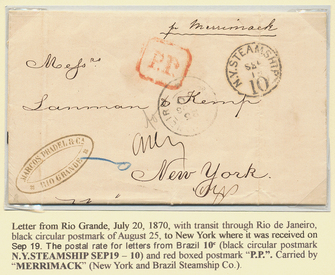 p Merrimack
Messrs
Lanman & Kemp
New York.
P.P.
N.Y. STEAMSHIP
SEP
10
MARCUS PRADEL & Co.
RIO GRANDE
Letter from Rio Grande, July 20, 1870, with transit through Rio de Janeiro,
black circular postmark of August 25, to New York where it was received on
Sep 19. The postal rate for letters from Brazil 10¢ (black circular postmark
N.Y.STEAMSHIP SEP19 – 10) and red boxed postmark "P.P.". Carried by
"MERRIMACK" (New York and Brazil Steamship Co.).